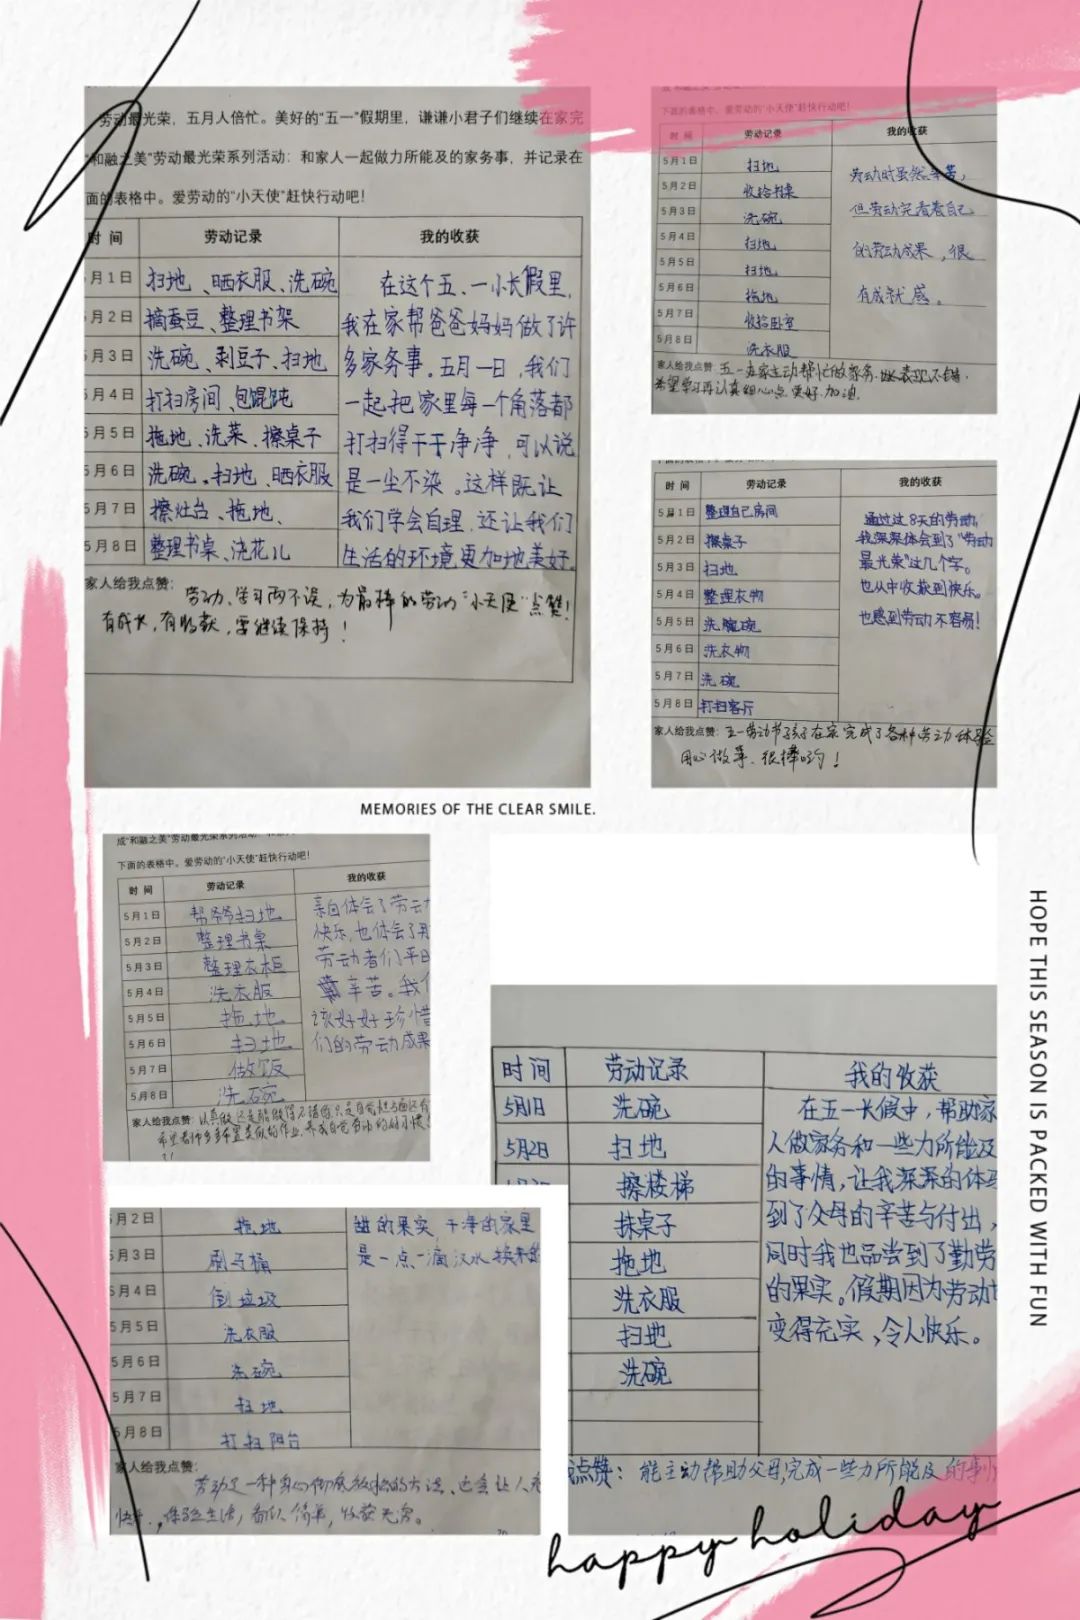 劳动最光荣，五月人倍忙。美好的“五一”假期里，谦谦小君子们继续在家完
“和融之美”劳动最光荣系列活动：和家人一起做力所能及的家务事，并记录在
面的表格中。爱劳动的“小天使”赶快行动吧！
时 间 劳动记录 我的收获
5月1日 扫地、晒衣服、洗碗
5月2日 摘蚕豆、整理书架
5月3日 洗碗、剥豆子、扫地
5月4日 打扫房间、包馄饨
5月5日 拖地、洗菜、擦桌子
5月6日 洗碗、扫地、晒衣服
5月7日 擦灶台、拖地、
5月8日 整理书桌、浇花儿
在这个五、一小长假里，
我在家帮爸爸妈妈做了许
多家务事。五月一日，我们
一起把家里每一个角落都
打扫得干干净净，可以说
是一尘不染。这样既让
我们学会自理，还让我们
生活的环境更加地美好。
家人给我点赞：劳动、学习两不误，为最棒的劳动“小天使”点赞！
有成长，有收获，要继续保持！
下面的表格中。爱劳动的“小天使”赶快行动吧！
时 间 劳动记录 我的收获
5月1日 扫地
5月2日 收拾书桌
5月3日 洗碗
5月4日 扫地
5月5日 扫地
5月6日 拖地
5月7日 收拾卧室
5月8日 洗衣服
劳动时虽然辛苦，
但劳动完看着自己
的劳动成果，很
有成就感。
家人给我点赞：五一在家主动帮忙做家务，表现不错，
希望学习再认真细心点更好，加油。
时 间 劳动记录 我的收获
5月1日 整理自己房间
5月2日 擦桌子
5月3日 扫地
5月4日 整理衣物
5月5日 洗碗
5月6日 洗衣物
5月7日 洗碗
5月8日 打扫客厅
通过这8天的劳动，
我深深体会到了“劳动
最光荣”这几个字。
也从中收获到快乐。
也感到劳动不容易！
家人给我点赞：五一劳动节孩子在家完成了各种劳动体验
用心做事，很棒哟！
MEMORIES OF THE CLEAR SMILE.
成“和融之美”劳动最光荣系列活动：
下面的表格中。爱劳动的“小天使”赶快行动吧！
时 间 劳动记录 我的收获
5月1日 帮爷爷扫地
5月2日 整理书桌
5月3日 整理衣柜
5月4日 洗衣服
5月5日 拖地
5月6日 扫地
5月7日 做饭
5月8日 洗碗
亲自体会了劳动
快乐，也体会了那
劳动者们平日
辛苦。我们
该好好珍惜
们的劳动成果
家人给我点赞：
时间 劳动记录 我的收获
5月1日 洗碗
5月2日 扫地
擦楼梯
抹桌子
拖地
洗衣服
扫地
洗碗
在五一长假中，帮助家
人做家务和一些力所能及
的事情，让我深深的体
到了父母的辛苦与付出，
同时我也品尝到了勤劳
的果实。假期因为劳动
变得充实，令人快乐。
点赞：能主动帮助父母完成一些力所能及的事
5月2日 拖地
5月3日 刷马桶
5月4日 倒垃圾
5月5日 洗衣服
5月6日 洗碗
5月7日 扫地
5月8日 打扫阳台
的果实，干净的家里
是一点一滴汗水换来的
家人给我点赞：
劳动是一种身心彻底放松的方法，也会让人
快乐，体验生活，看似简单，收获无穷。
HOPE THIS SEASON IS PACKED WITH FUN
happy holiday